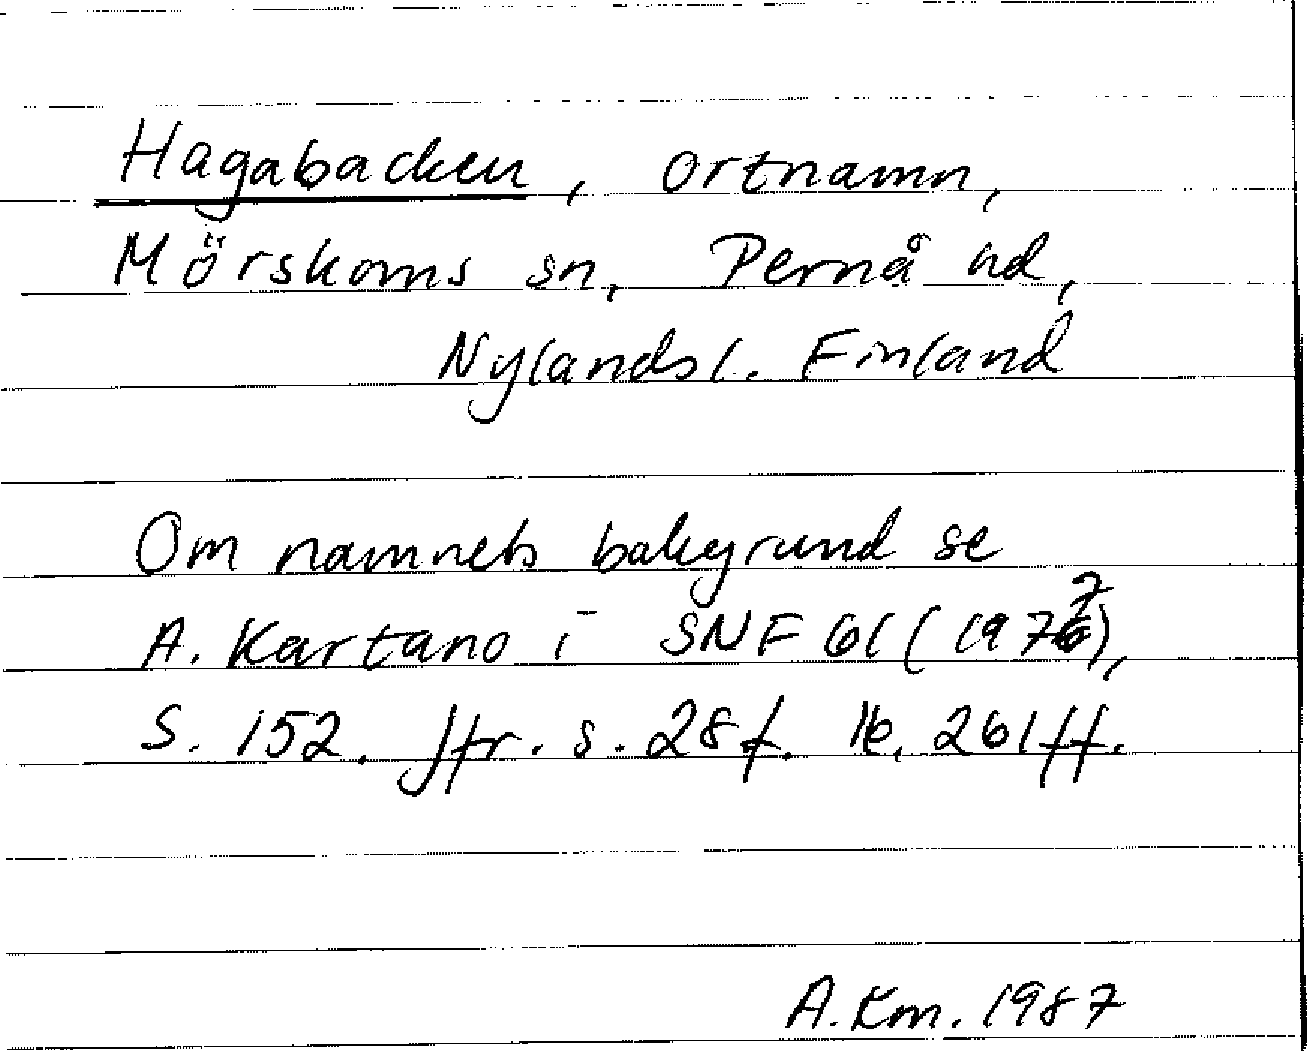 Hagabacken, ortnamn,
Mörskoms sn, Pernå hd,
Nylands l. Finland
Om namnets bakgrund se
A. Kartano i SNF 61 (1977),
S. 152. Jfr. s. 28 f. 261 ff.
A. Km. 1987